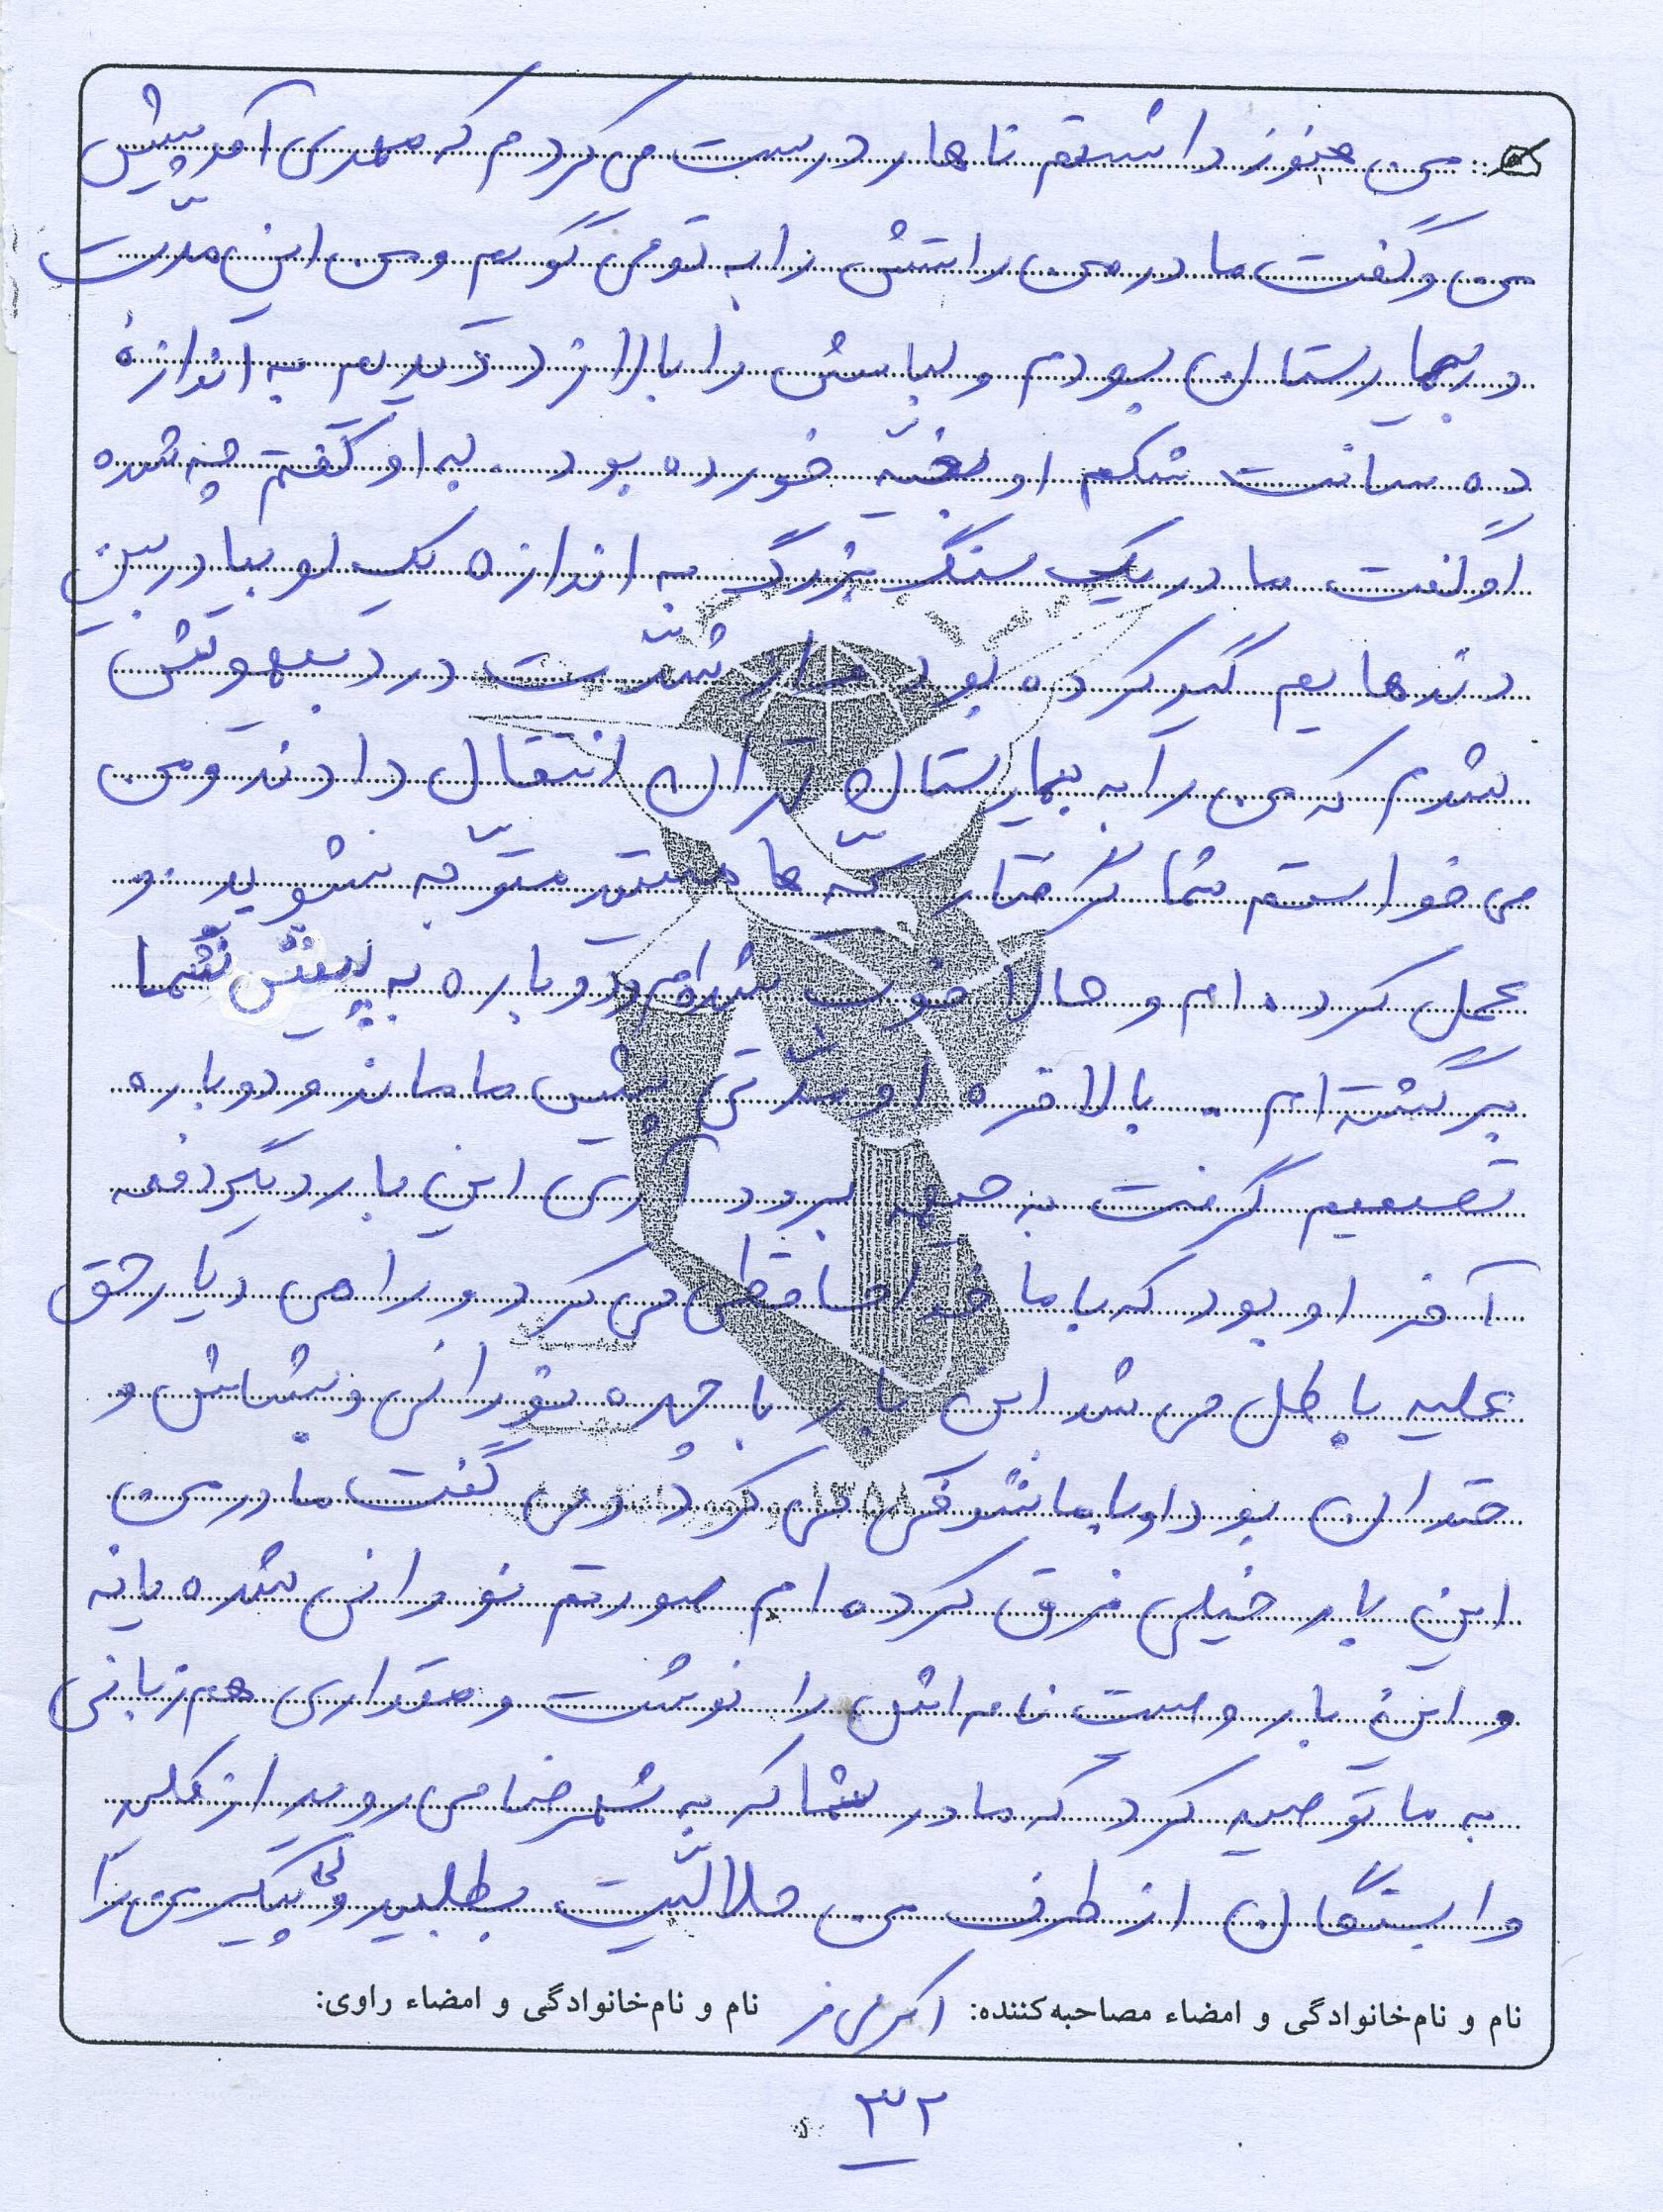 من هنوز داشتم ناهار درست می کردم که مهدی آمد پیش
من و گفت مادر من راستش را به تو می گویم و من این مدّت
در بیمارستان بودم و لباسش را بالا زد دیدیم به اندازهٔ
ده سانت شکم او بخیّه خورده بود. به او گفتم چه شده
او گفت مادر یک سنگ بزرگ به اندازه یک لوبیا در بین
دنده هایم گیر کرده بود و از شدّت درد بیهوش
شدم که من را به بیمارستان تهران انتقال دادند و من
می خواستم شما گرفتار بچّه ها هستید متوّجه نشوید. و
عمل کرده ام و حالا خوب شده ام و دوباره به پیش شما
برگشته ام. بالاخره او مدّتی پیش ما ماند و دوباره
تصمیم گرفت به جبهه برود آری این بار دیگر دفعه
آخر او بود که با ما خداحافظی می کرد و راهی دیار حق
علیه باطل می شد این بار با چهره نورانی و بشاش و
خندان بود او با ما شوخی می کرد و می گفت مادر من
این بار خیلی فرق کرده ام صورتم نورانی شده یا نه
و این بار وصیت نامه اش را نوشت و مقداری هم زبانی
به ما توصیه کرد که مادر شما که به شهرضا می روید از کلیه
وابستگان از طرف من حلالیّت بطلبید و پیگیری را
نام و نام‌خانوادگی و امضاء مصاحبه‌کننده: نام و نام‌خانوادگی و امضاء راوی:
۳۲